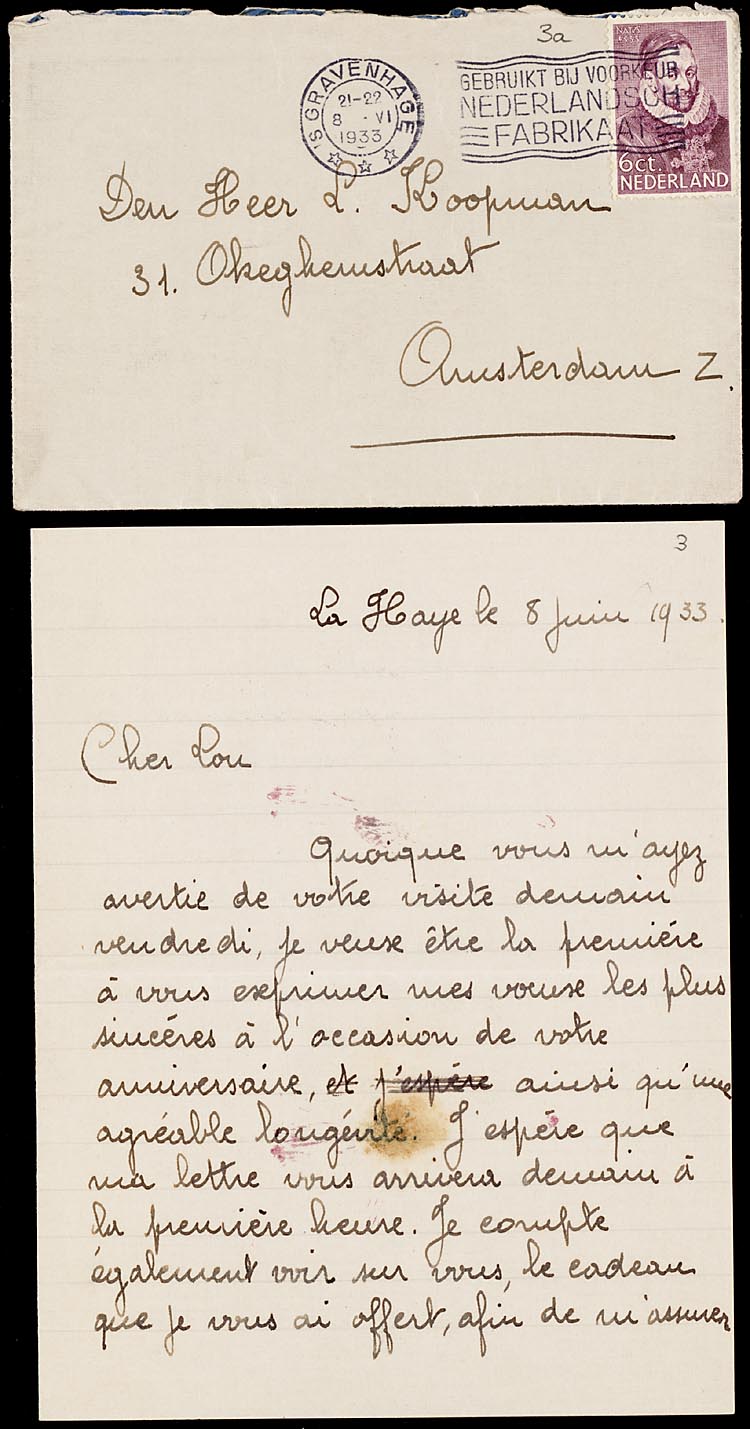 3a
'S GRAVENHAGE
21-22
8 - VI
1933
GEBRUIKT BIJ VOORKEUR
NEDERLANDSCH
FABRIKAAT
NATUS
1533
6ct.
NEDERLAND
Den Heer L. Koopman
31. Okeghemstraat
Amsterdam Z.
3
La Haye le 8 Juin 1933.
Cher Lou
Quoique vous m'ayez
avertie de votre visite demain
vendredi, je veux être la première
à vous exprimer mes voeux les plus
sincères à l'occasion de votre
anniversaire, et j'espère ainsi qu'une
agréable longévité. J'espère que
ma lettre vous arrivera demain à
la première heure. Je compte
également voir sur vous, le cadeau
que je vous ai offert, afin de m'assurer